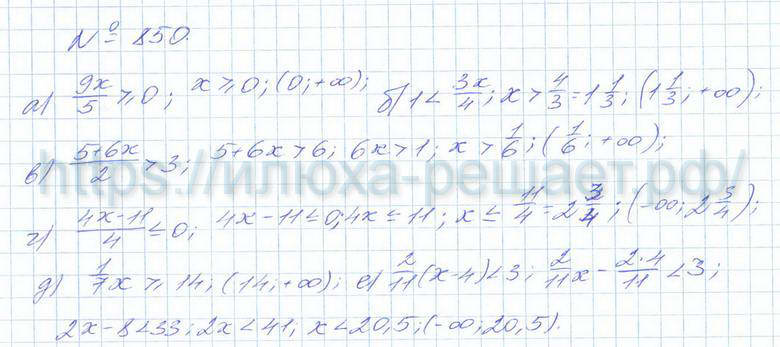 № 850.
а) 9x/5 ⩾ 0; x ⩾ 0; (0; +∞); б) 1 < 3x/4; x > 4/3 = 1 1/3; (1 1/3; +∞);
в) 5+6x/2 > 3; 5+6x > 6; 6x > 1; x > 1/6; (1/6; +∞);
https://илюха-решает.рф/
г) 4x-11/4 ≤ 0; 4x-11 ≤ 0; 4x ≤ 11; x ≤ 11/4 = 2 3/4; (-∞; 2 3/4);
д) 1/7x ⩾ 14; (14; +∞); е) 2/11(x-4) < 3; 2/11x - 2·4/11 < 3;
2x-8 < 33; 2x < 41; x < 20,5; (-∞; 20,5).